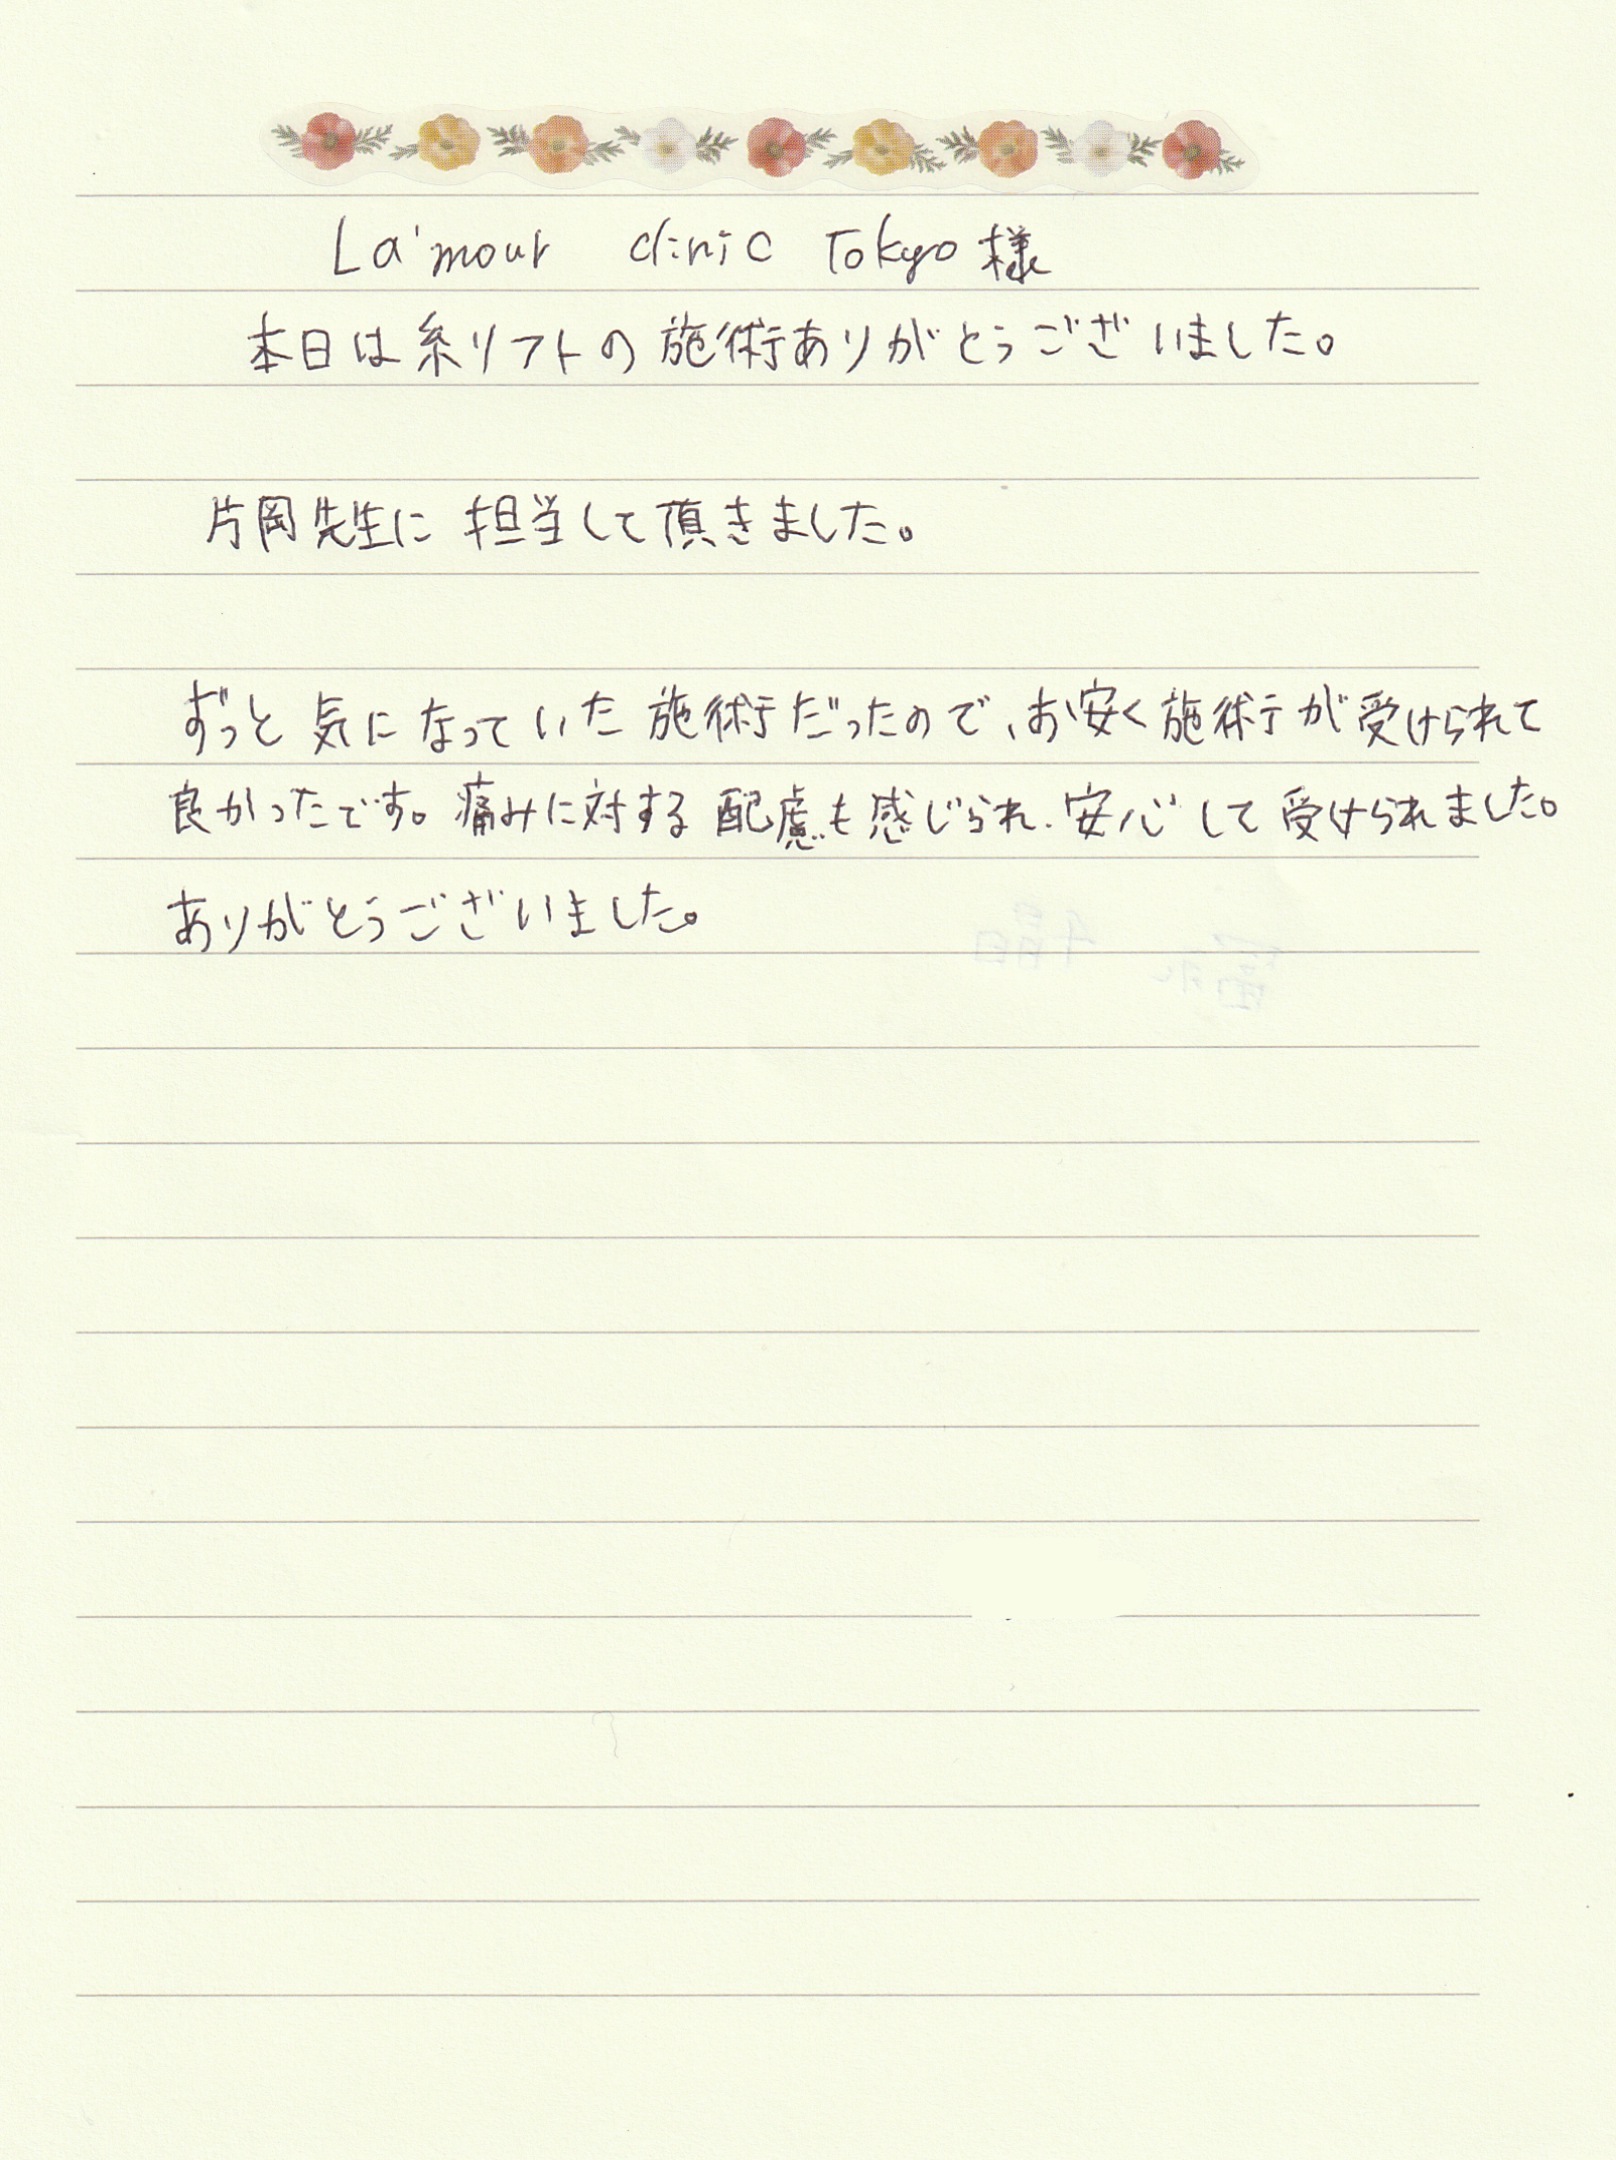 La'mour clinic Tokyo 様
本日は糸リフトの施術ありがとうございました。
片岡先生に担当して頂きました。
ずっと気になっていた施術だったので、お安く施術が受けられて
良かったです。痛みに対する配慮も感じられ、安心して受けられました。
ありがとうございました。